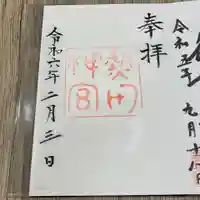 令和五年
九月十
奉拝
熱田
神宮
令和六年二月三日